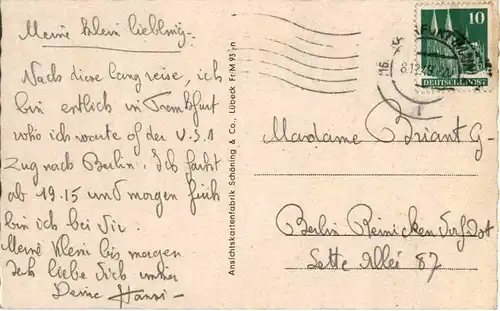 Meine klein liebling.
Nach diese lang reise, ich
bin entlich in Frankfurt
who ich warte of der U.S.A
Zug nach Berlin. Ich fahrt
ab 19.15 und morgen früh
bin ich bei Dir.
Meine Klein bis morgen
Ich liebe Dich
Deine Hansi -
Ansichtskartenfabrik Schöning & Co., Lübeck Fr/M 93 n
10
DEUTSCHE POST
16.
Madame Briant G-
Berlin Reinickendorf Ost
Sette Allei 87